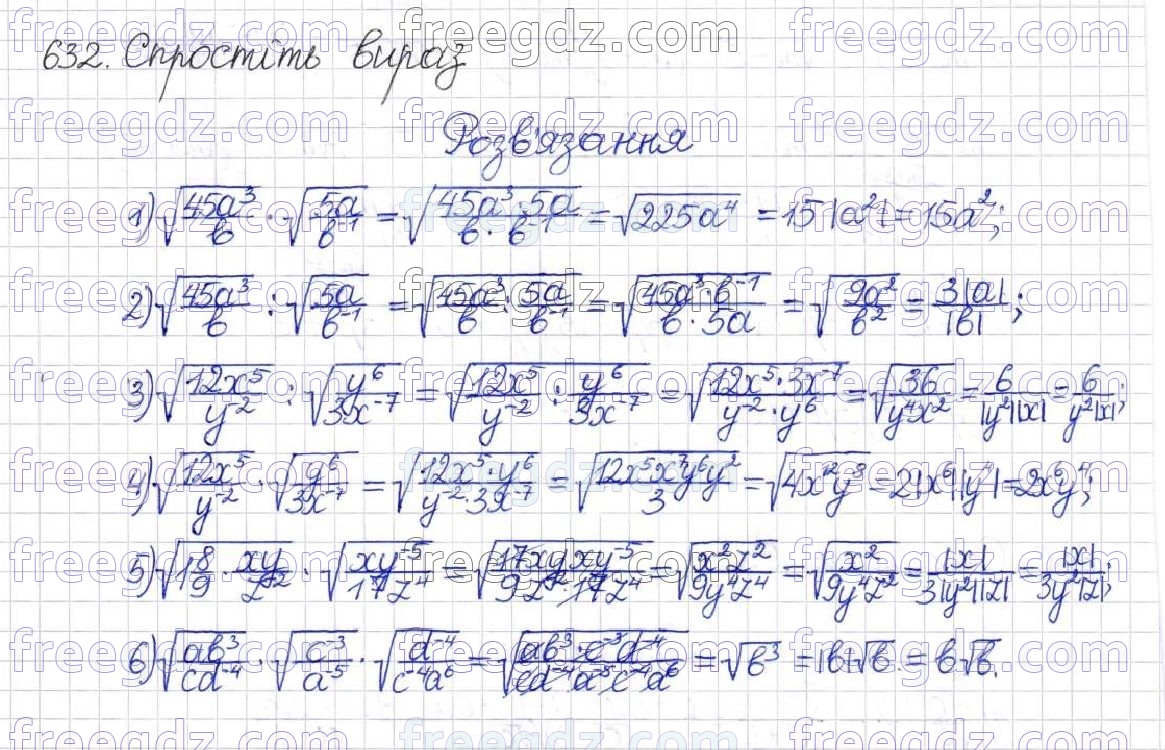 632. Спростіть вираз
Розв'язання
1) √(45a³/b) · √(5a/b⁻¹) = √(45a³·5a/(b·b⁻¹)) = √(225a⁴) = 15|a²| = 15a²;
2) √(45a³/b) : √(5a/b⁻¹) = √(45a³/b : 5a/b⁻¹) = √(45a³·b⁻¹/(b·5a)) = √(9a²/b²) = 3|a|/|b|;
3) √(12x⁵/y⁻²) : √(y⁶/3x⁻⁷) = √(12x⁵/y⁻² : y⁶/3x⁻⁷) = √(12x⁵·3x⁻⁷/(y⁻²·y⁶)) = √(36/(y⁴x²)) = 6/(|y²||x|) = 6/(y²|x|);
4) √(12x⁵/y⁻²) · √(y⁶/3x⁻⁷) = √(12x⁵·y⁶/(y⁻²·3x⁻⁷)) = √(12x⁵x⁷y⁶y²/3) = √(4x¹²y⁸) = 2|x⁶||y⁴| = 2x⁶y⁴;
5) √(1 8/9 · xy/z²) · √(xy⁻⁵/17z⁴) = √(17xyxy⁻⁵/(9z²·17z⁴)) = √(x²z²/(9y⁴z⁴)) = √(x²/(9y⁴z²)) = |x|/(3|y²||z|) = |x|/(3y²|z|);
6) √(ab³/cd⁻⁴) · √(c⁻³/a⁻⁵) · √(d⁻⁴/c⁻⁴a⁶) = √(ab³·c⁻³d⁻⁴/(cd⁻⁴a⁻⁵c⁻⁴a⁶)) = √b³ = |b|√b = b√b.
freegdz.com freegdz.com freegdz.com